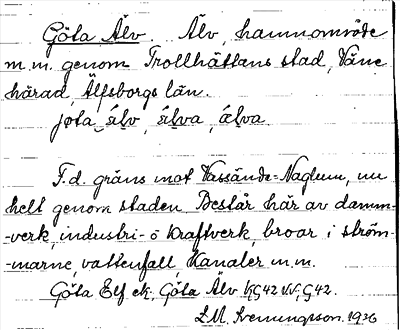 Göta Älv. Älv, hamnområde
m.m. genom Trollhättans stad, Väne
härad, Älfsborgs län.
jöta älv, älva, älva.
F.d. gräns mot Vassända-Naglum, nu
helt genom staden. Består här av damm-
-verk, industri- o kraftverk, broar i ström-
-marne, vattenfall, Kanaler m.m.
Göta Elf ek, Göta Älv G42
Hemmingson 1936